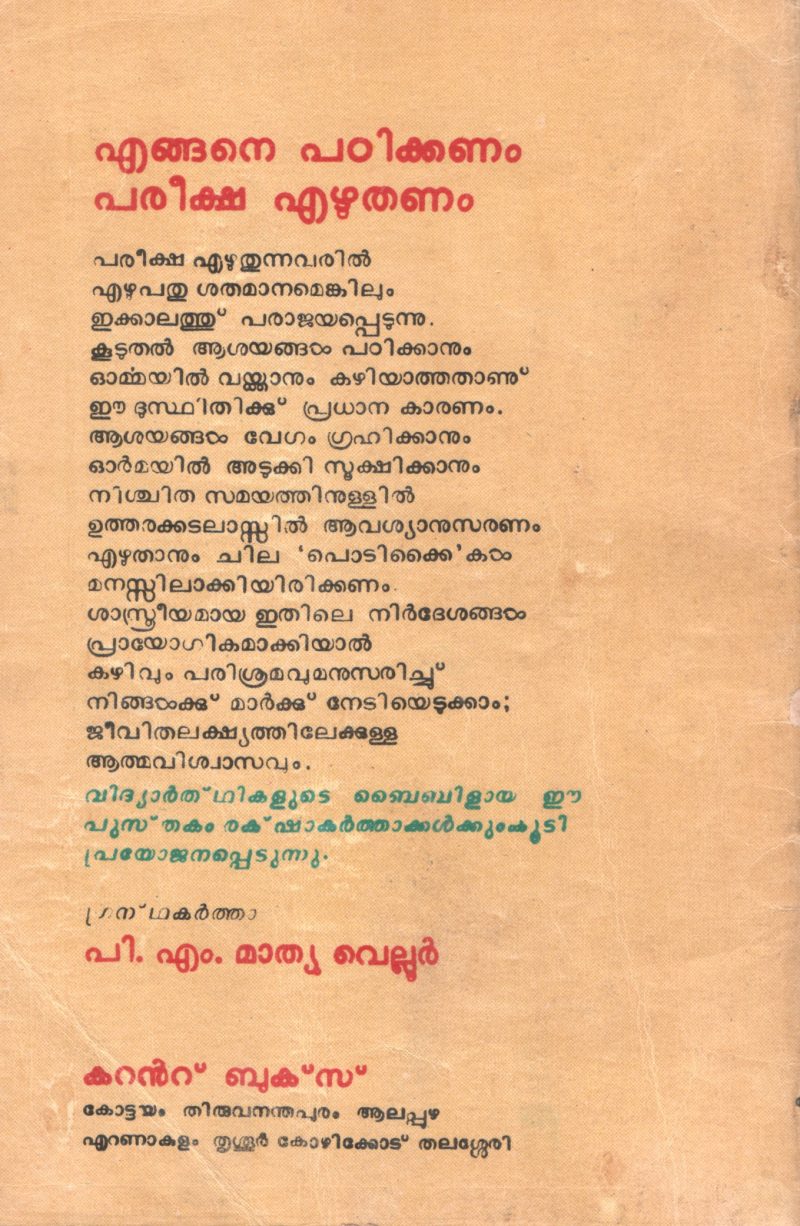 എങ്ങനെ പഠിക്കണം
പരീക്ഷ എഴുതണം
പരീക്ഷ എഴുതുന്നവരിൽ
എഴുപതു ശതമാനമെങ്കിലും
ഇക്കാലത്തു് പരാജയപ്പെടുന്നു.
കൂടുതൽ ആശയങ്ങൾ പഠിക്കാനും
ഓൎമ്മയിൽ വയ്ക്കാനും കഴിയാത്തതാണു്
ഈ ദുസ്ഥിതിക്കു് പ്രധാന കാരണം.
ആശയങ്ങൾ വേഗം ഗ്രഹിക്കാനും
ഓർമയിൽ അടുക്കി സൂക്ഷിക്കാനും
നിശ്ചിത സമയത്തിനുള്ളിൽ
ഉത്തരക്കടലാസ്സിൽ ആവശ്യാനുസരണം
എഴുതാനും ചില 'പൊടിക്കൈ'കൾ
മനസ്സിലാക്കിയിരിക്കണം.
ശാസ്ത്രീയമായ ഇതിലെ നിർദേശങ്ങൾ
പ്രായോഗികമാക്കിയാൽ
കഴിവും പരിശ്രമവുമനുസരിച്ചു്
നിങ്ങൾക്കു് മാർക്കു് നേടിയെടുക്കാം;
ജീവിതലക്ഷ്യത്തിലേക്കുള്ള
ആത്മവിശ്വാസവും.
വിദ്യാർത്ഥികളുടെ ബൈബിളായ ഈ
പുസ്തകം രക്ഷാകർത്താക്കൾക്കുംകൂടി
പ്രയോജനപ്പെടുന്നു.
ഗ്രന്ഥകർത്താ
പി. എം. മാത്യു വെല്ലൂർ
കറൻറ് ബുക്സ്
കോട്ടയം തിരുവനന്തപുരം ആലപ്പുഴ
എറണാകുളം തൃശൂർ കോഴിക്കോട് തലശ്ശേരി